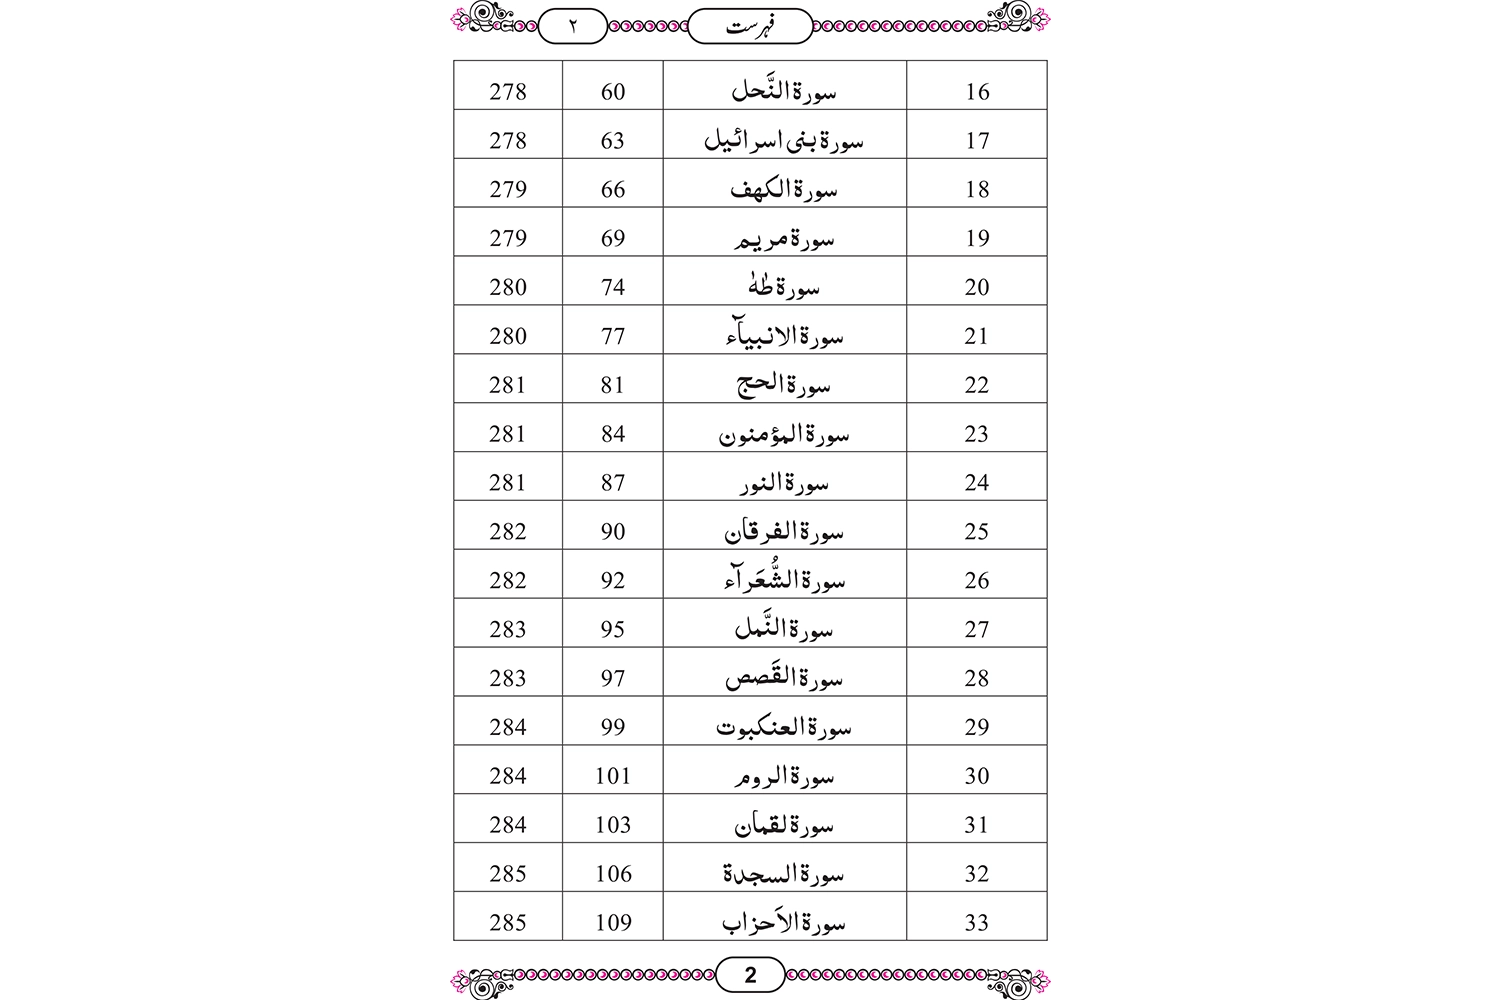 فہرست ۲
16 سورة النَّحل 60 278
17 سورة بنی اسرائیل 63 278
18 سورة الکھف 66 279
19 سورة مریم 69 279
20 سورة طٰهٰ 74 280
21 سورة الانبیآء 77 280
22 سورة الحج 81 281
23 سورة المؤمنون 84 281
24 سورة النور 87 281
25 سورة الفرقان 90 282
26 سورة الشُّعَرآء 92 282
27 سورة النَّمل 95 283
28 سورة القَصص 97 283
29 سورة العنکبوت 99 284
30 سورة الروم 101 284
31 سورة لقمان 103 284
32 سورة السجدة 106 285
33 سورة الاَحزاب 109 285
2